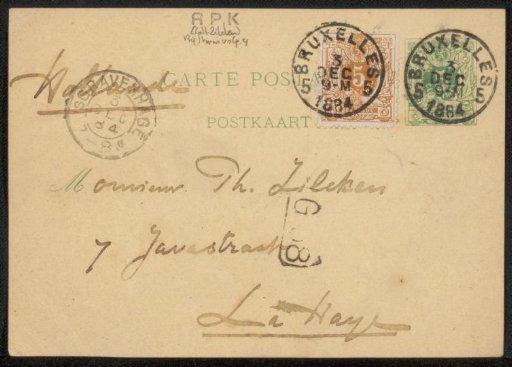 RPK
Hollande
CARTE POS
POSTKAART
BRUXELLES
3
DEC
9-M
5 5
1884
5
BRUXELLES
3
DEC
9-M
5 5
1884
S'GRAVENHAGE
Monsieur Th. Zilcken
7 Javastraat
G 8
La Haye